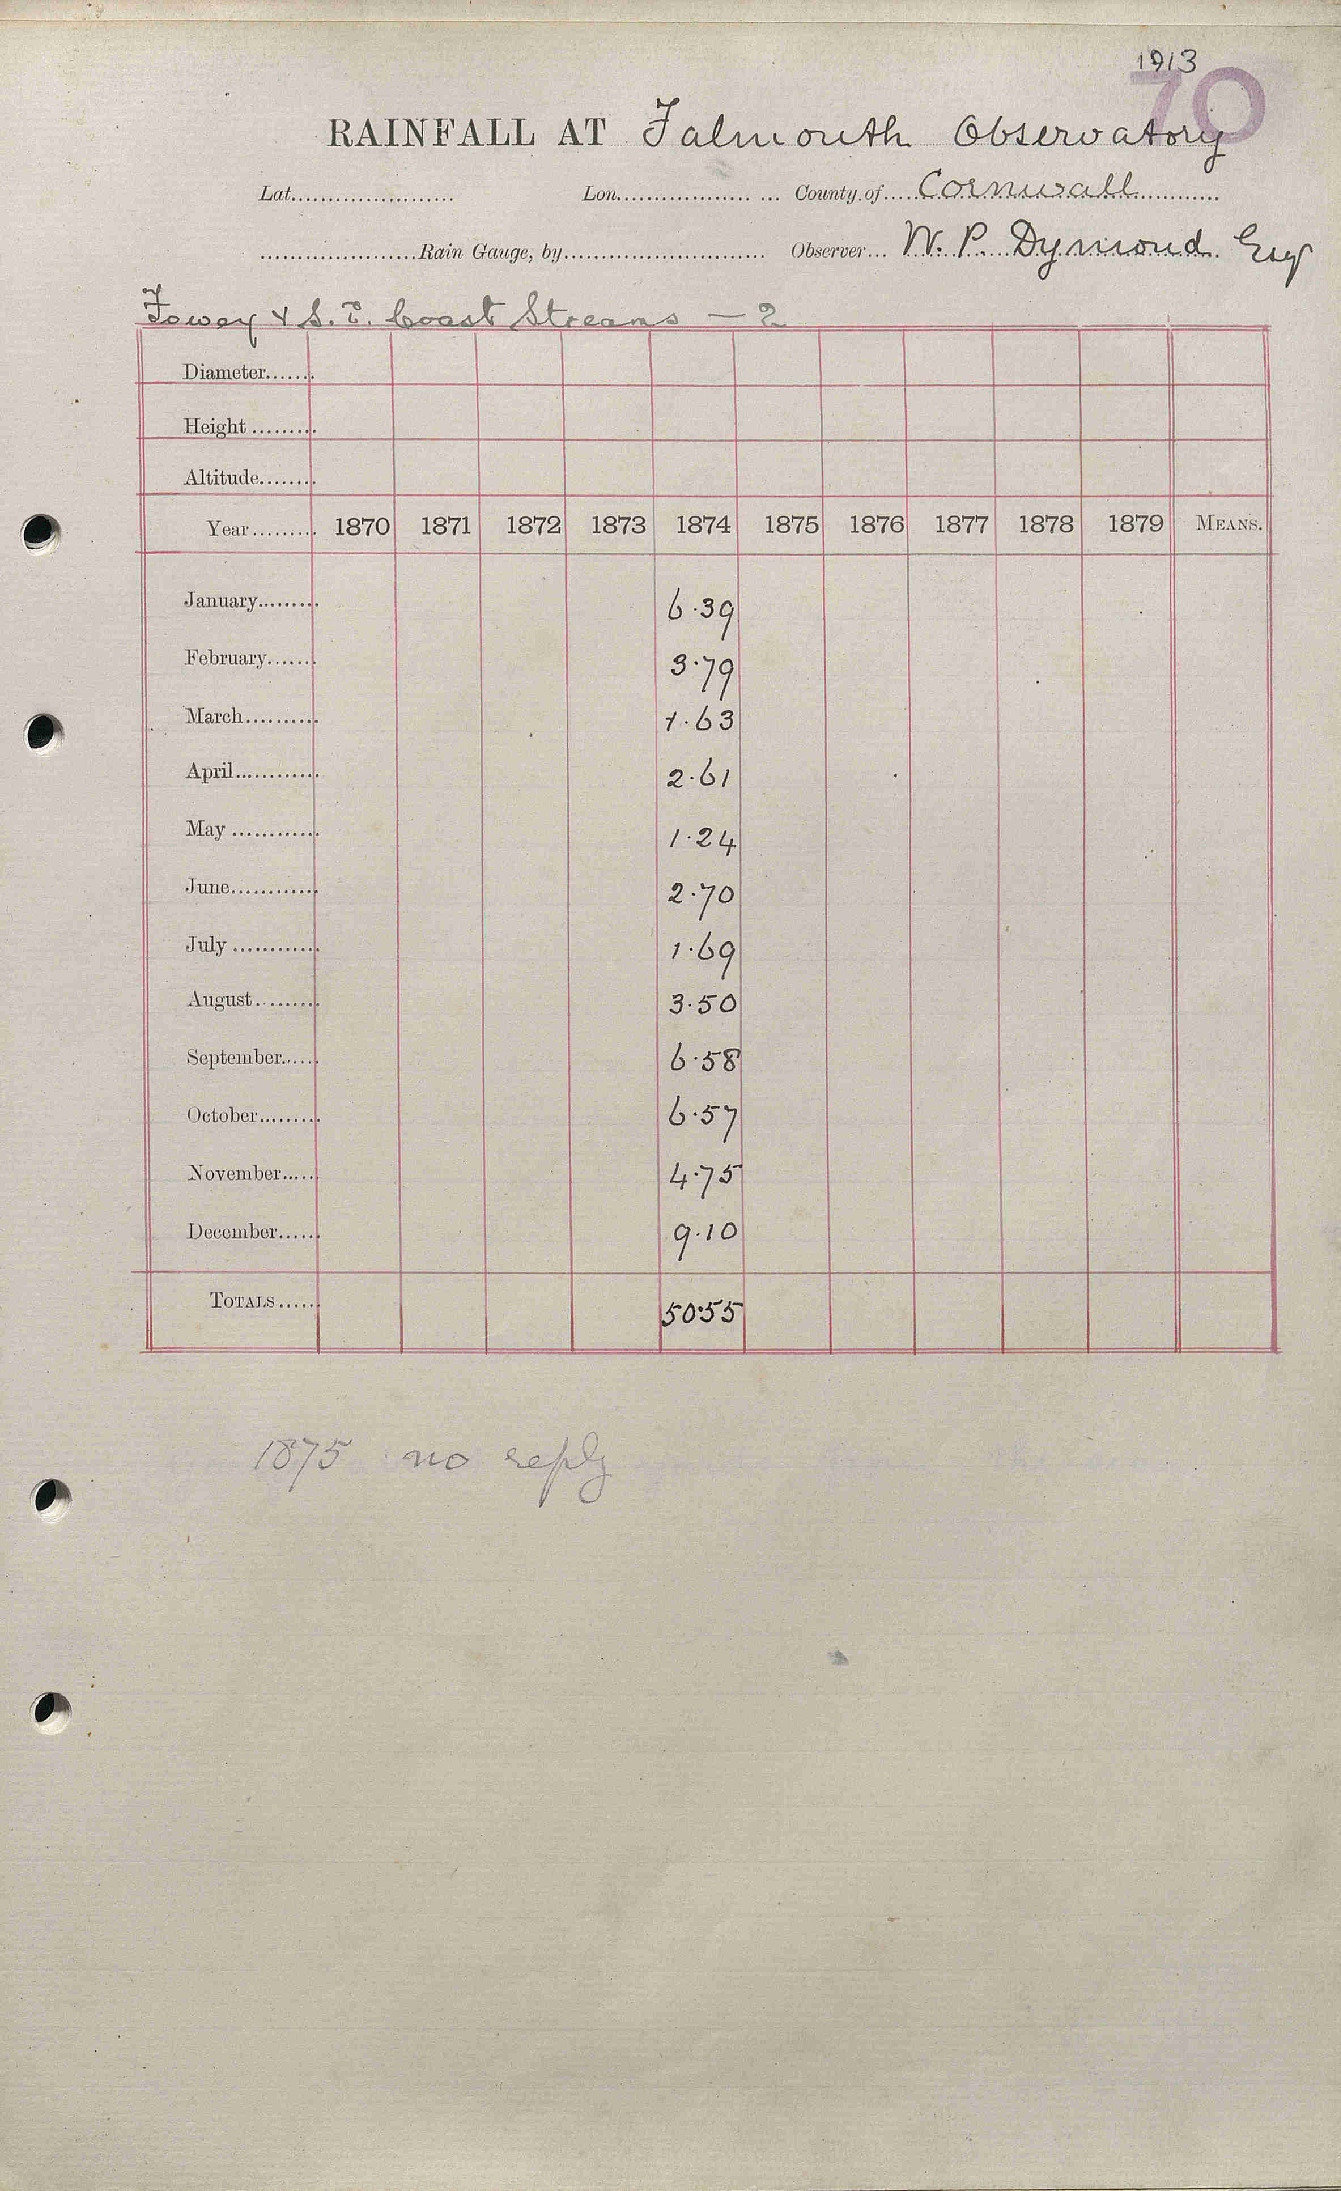 1913
70
RAINFALL AT Falmouth Observatory
Lat. Lon. County of Cornwall
Rain Gauge, by Observer W. P. Dymond Esq
Fowey & S.E. Coast Streams — 2
Diameter
Height
Altitude
Year 1870 1871 1872 1873 1874 1875 1876 1877 1878 1879 MEANS.
January 6.39
February 3.79
March 1.63
April 2.61
May 1.24
June 2.70
July 1.69
August 3.50
September 6.58
October 6.57
November 4.75
December 9.10
TOTALS 50.55
1875 no reply